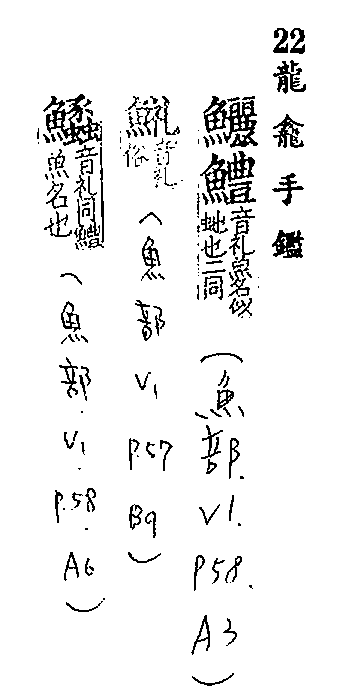 22龍龕手鑑
鱺鱧音礼魚名似虵也二同(魚部.V1.P58.A3)
音礼俗(魚部V1P.57B9)
音礼同鱧魚名也(魚部.V1.P.58.A6)